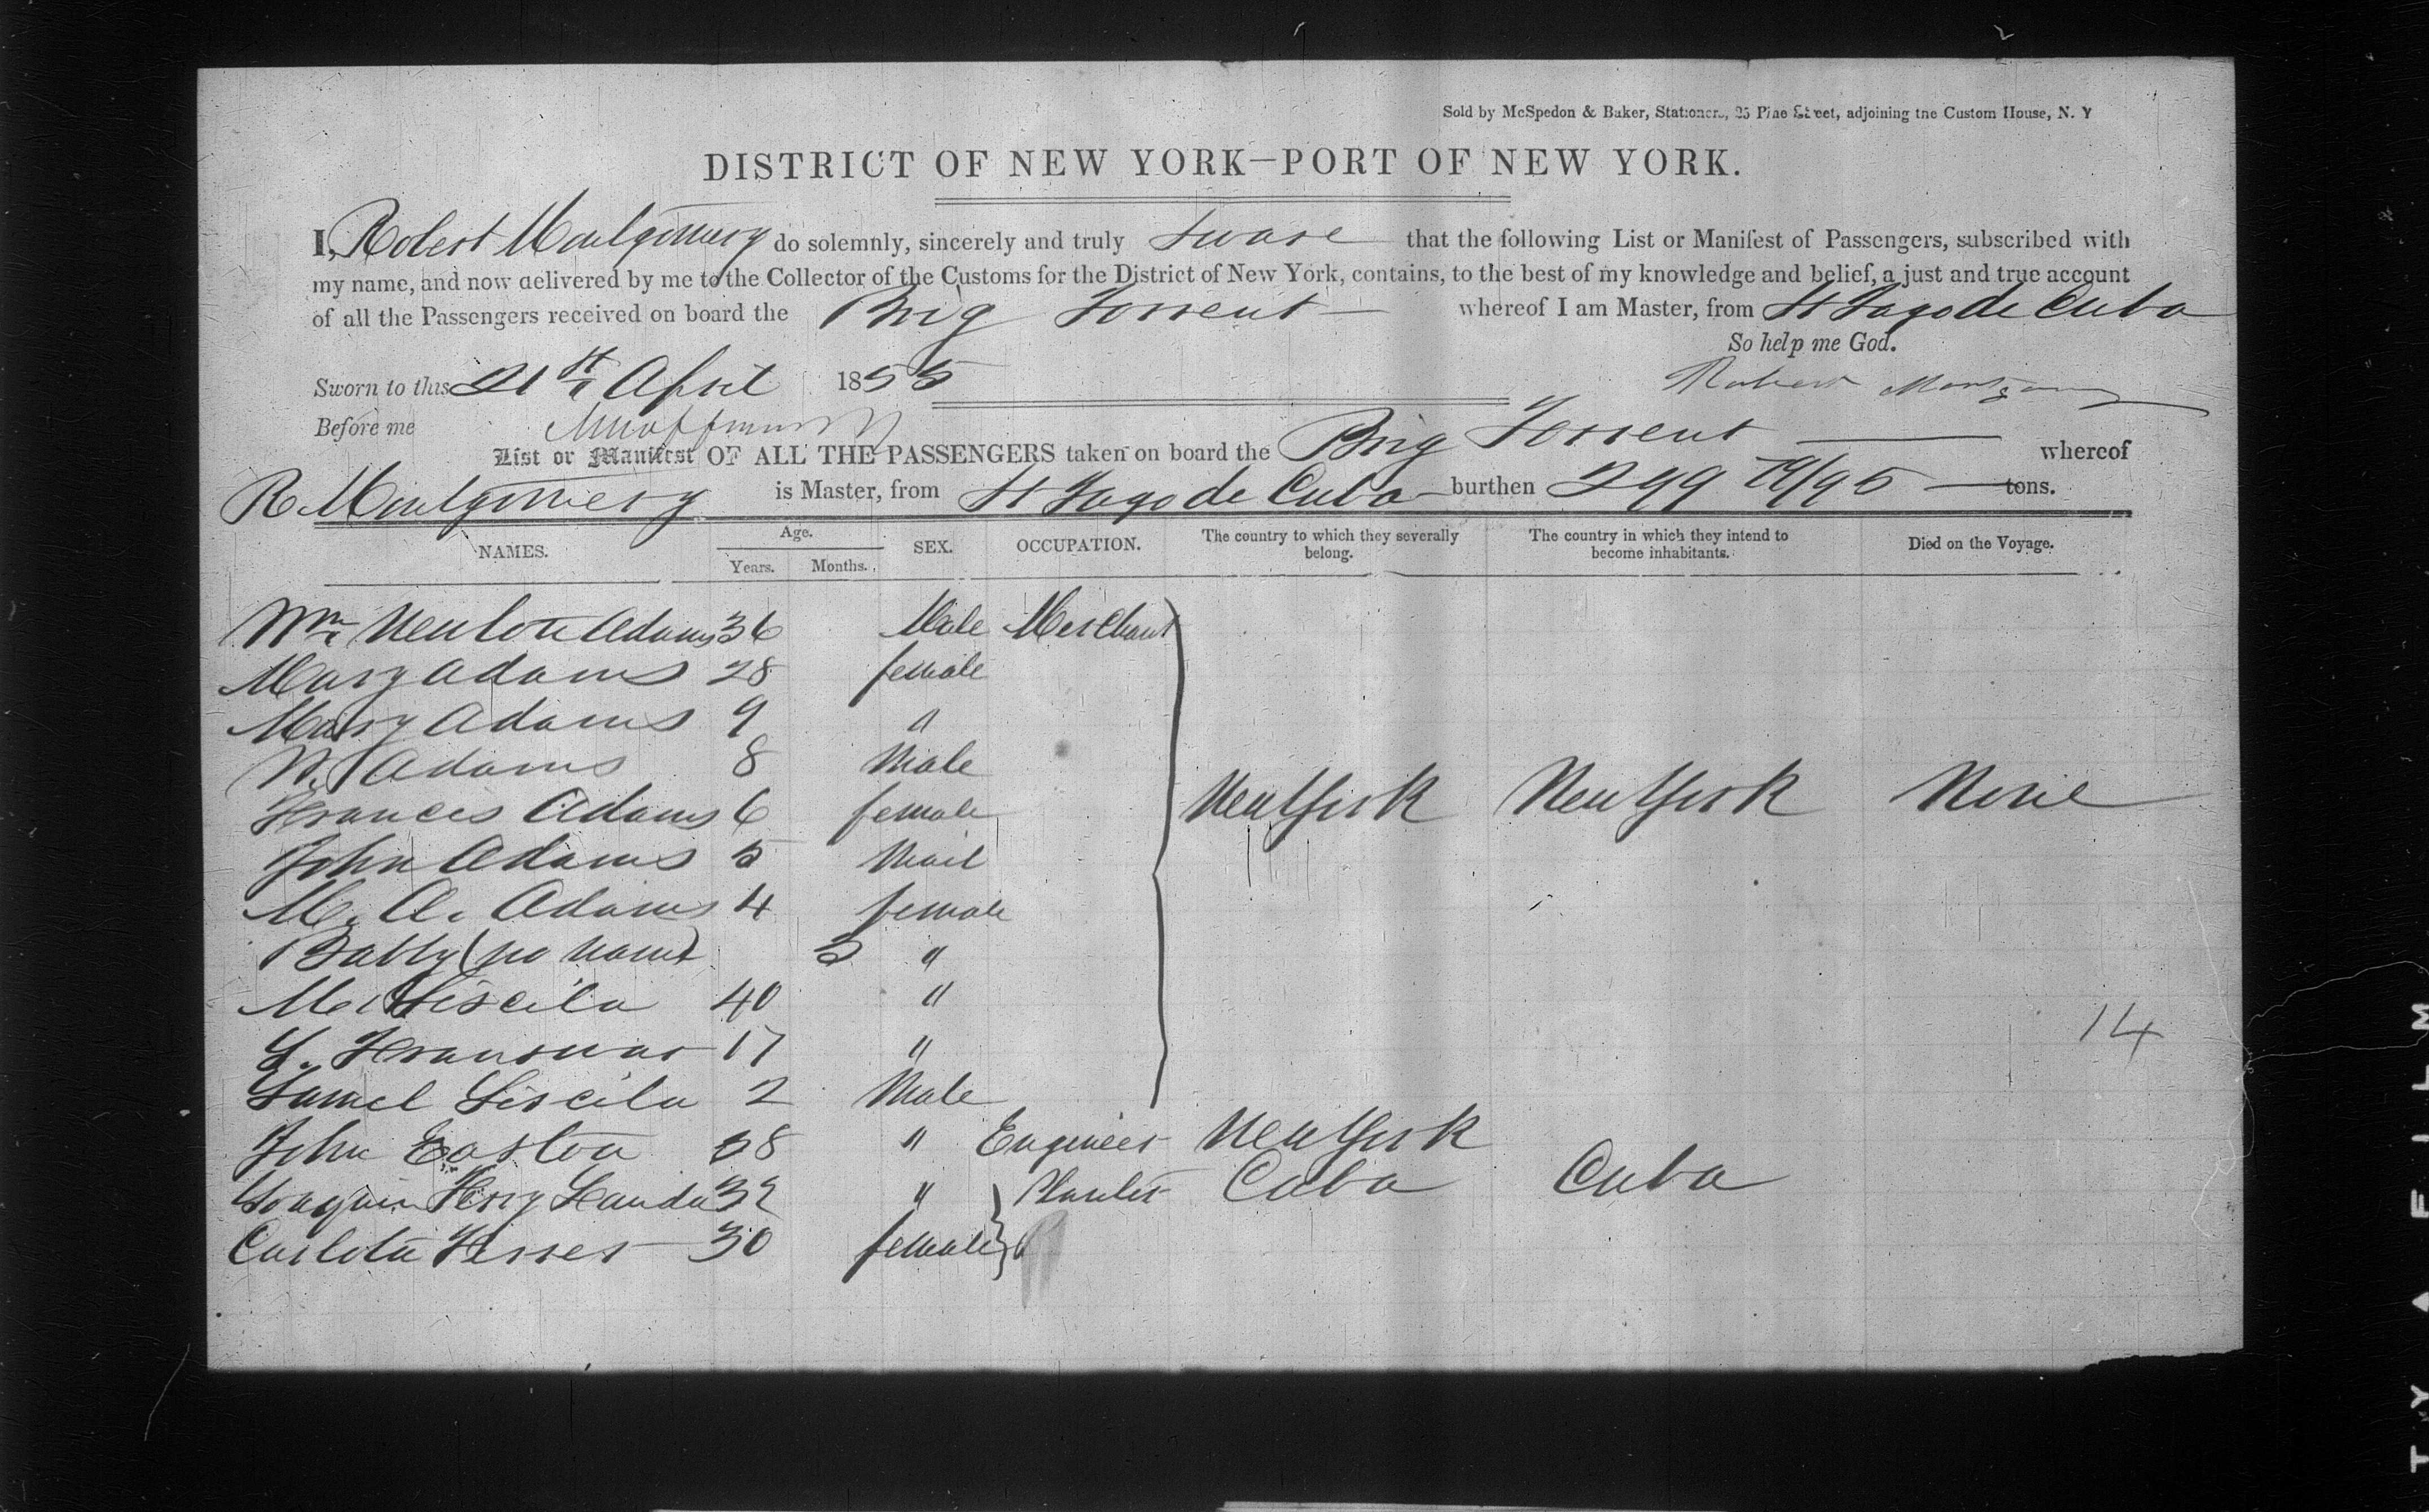 Sold by McSpedon & Baker, Stationers, 25 Pine Street, adjoining the Custom House, N. Y
DISTRICT OF NEW YORK—PORT OF NEW YORK.
I, Robert Montgomery do solemnly, sincerely and truly sware that the following List or Manifest of Passengers, subscribed with
my name, and now delivered by me to the Collector of the Customs for the District of New York, contains, to the best of my knowledge and belief, a just and true account
of all the Passengers received on board the Brig Torrent whereof I am Master, from St Jago de Cuba
So help me God.
Sworn to this 21st April 1855 Robert Montgomery
Before me
List or Manifest OF ALL THE PASSENGERS taken on board the Brig Torrent whereof
R Montgomery is Master, from St Jago de Cuba burthen 299 79/95 tons.
NAMES. Age. Years. Months. SEX. OCCUPATION. The country to which they severally belong. The country in which they intend to become inhabitants. Died on the Voyage.
Wm Newton Adams 36 Male Merchant
Mary Adams 28 female
Mary Adams 9 "
W. Adams 8 Male
Frances Adams 6 female New York New York None
John Adams 5 Mail
M. A. Adams 4 female
Babby (no name) 3 "
40 "
17 " 14
2 Male
John Easton 38 " Engineer New York
Joaquin 32 " Planter Cuba Cuba
Carlota Ferrer 30 female